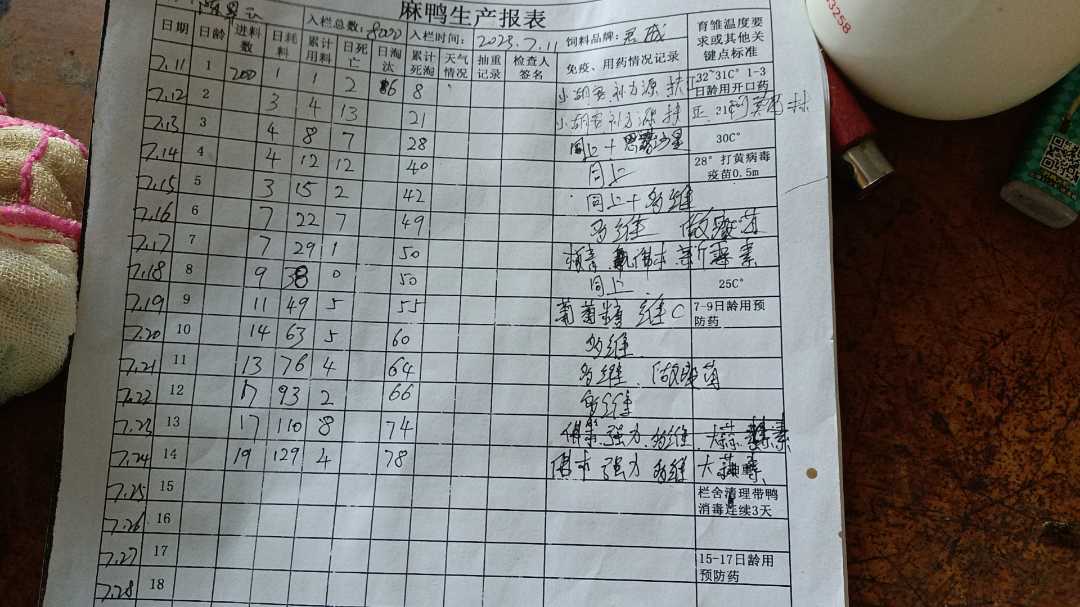 麻鸭生产报表
入栏总数: 8000 入栏时间: 2023.7.11 饲料品牌:
日期 日龄 进料数 日耗料 累计用料 日死亡 日淘汰 累计死淘 天气情况 抽重记录 检查人签名 免疫、用药情况记录 育雏温度要求或其他关键点标准
7.11 1 200 1 1 2 6 8 32°31C° 1-3日龄用开口药
7.12 2 3 4 13 21
7.13 3 4 8 7 28 同上+ 30C°
7.14 4 4 12 12 40 同上 28°打黄病毒疫苗0.5m
7.15 5 3 15 2 42 同上+多维
7.16 6 7 22 7 49 多维
7.17 7 7 29 1 50 新霉素
7.18 8 9 38 0 50 同上 25C°
7.19 9 11 49 5 55 葡萄糖 维C 7-9日龄用预防药
7.20 10 14 63 5 60 多维
7.21 11 13 76 4 64 多维
7.22 12 17 93 2 66 多维
7.23 13 17 110 8 74 强力 多维 大蒜素
7.24 14 19 129 4 78 强力 多维 大蒜素
7.25 15 栏舍清理带鸭消毒连续3天
7.26 16
7.27 17 15-17日龄用预防药
7.28 18
3258